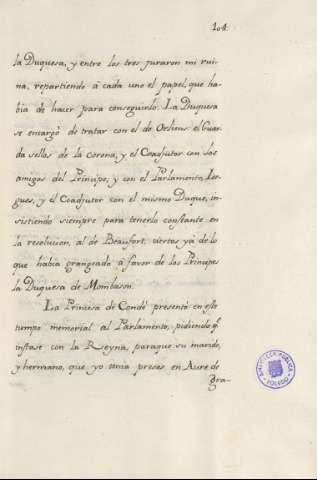 104.
la Duquesa, y entre los tres juraron mi rui-
na, repartiendo á cada uno el papel, que ha-
bia de hacer para conseguirlo. La Duquesa
se encargó de tratar con el de Orliens el Guar-
da sellos de la corona, y el Coadjutor con los
amigos del Principe, y con el Parlamento, Lor-
gues, y el Coadjutor con el mismo Duque, in-
sistiendo siempre para tenerlo constante en
la resolucion, al de Beaufort, ciertos yá de lo
que habia grangeado á favor de los Principes
la Duquesa de Mombason.
La Princesa de Condé presentó en este
tiempo memorial al Parlamento, pidiendo q.e
instase con la Reyna, paraque su marido,
y hermano, que yo tenia presos en Aure de
Gra-
BIBLIOTECA PUBLICA
TOLEDO